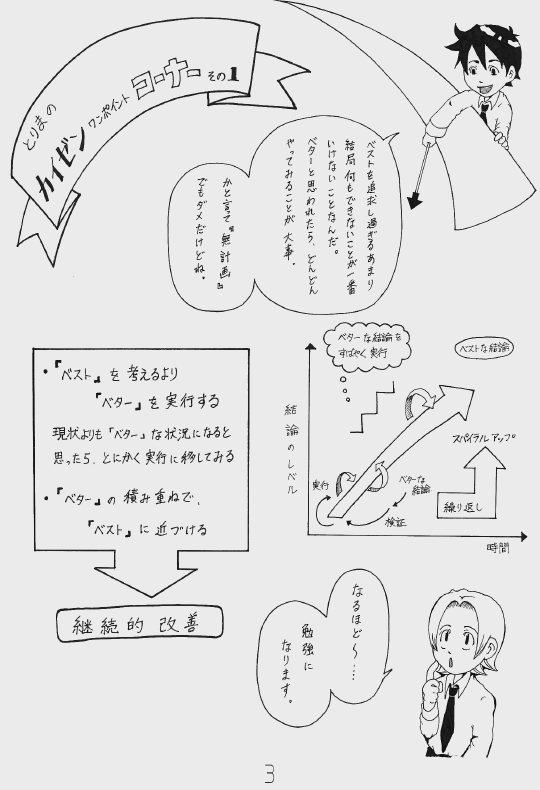 とりまの
カイゼン ワンポイント コーナー その1
ベストを追求し過ぎるあまり
結局何もできないことが一番
いけないことなんだ。
ベターと思われたら、どんどん
やってみることが大事。
かと言って『無計画』
でもダメだけどね。
・『ベスト』を考えるより
『ベター』を実行する
現状よりも『ベター』な状況になると
思ったら、とにかく実行に移してみる
・『ベター』の積み重ねで、
『ベスト』に近づける
継続的改善
ベターな結論を
すばやく実行
ベストな結論
結論のレベル
スパイラルアップ
実行
ベターな
結論
検証
繰り返し
時間
なるほど〜…
勉強に
なります。
3